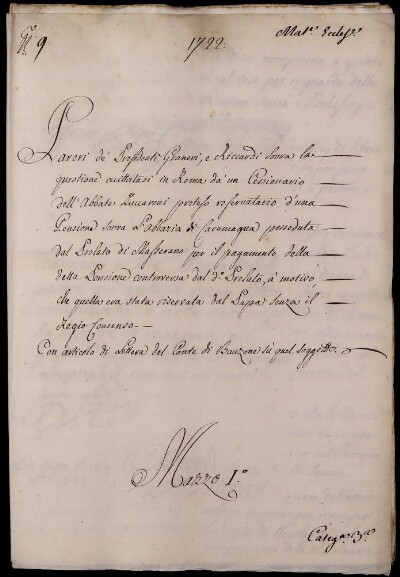 N.° 9
1722.
Mat.e Eccles.e
Pareri de' Presidenti Graneri, e Riccardi sovra la
questione eccitatasi in Roma da' un Cessionario
dell'Abbate Zuccaroni preteso reservatario d'una
Pensione sovra l'Abbazia di Caramagna posseduta
dal Prelato di Masserano per il pagamento della
detta Pensione controversa dal d.° Prelato, a' motivo,
che quella era stata riservata dal Pappa senza il
Regio Consenso.
Con articolo di Lettera del Conte di Bauzone su' quel soggetto.
Mazzo I.°
Categ.a 3.a